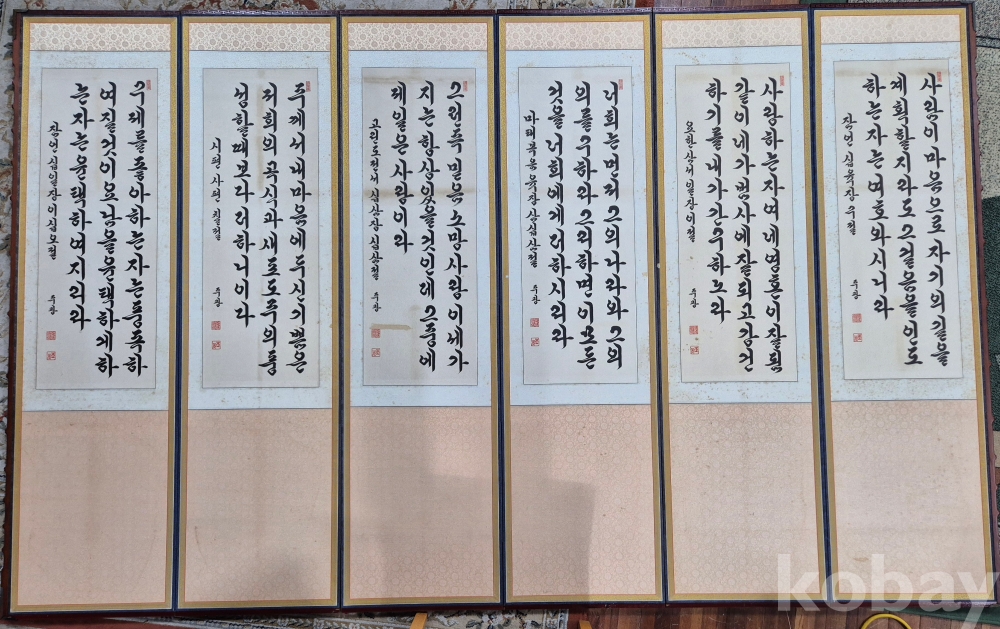 사람이마음으로자기의길을
계획할지라도그걸음을인도
하는자는여호와시니라
잠언 십육장 구절
사랑하는자여네영혼이잘됨
같이네가범사에잘되고강건
하기를내가간구하노라
요한삼서 일장 이절
너희는먼저그의나라와그의
의를구하라그리하면이모든
것을너희에게더하시리라
마태복음 육장 삼십삼절
그런즉믿음소망사랑이세가
지는항상있을것인데그중에
제일은사랑이라
고린도전서 십삼장 십삼절
주께서내마음에두신기쁨은
저희의곡식과새포도주의풍
성할때보다더하니이다
시편 사편 칠절
구제를좋아하는자는풍족하
여질것이요남을윤택하게하
는자는윤택하여지리라
잠언 십일장 이십오절
kobay